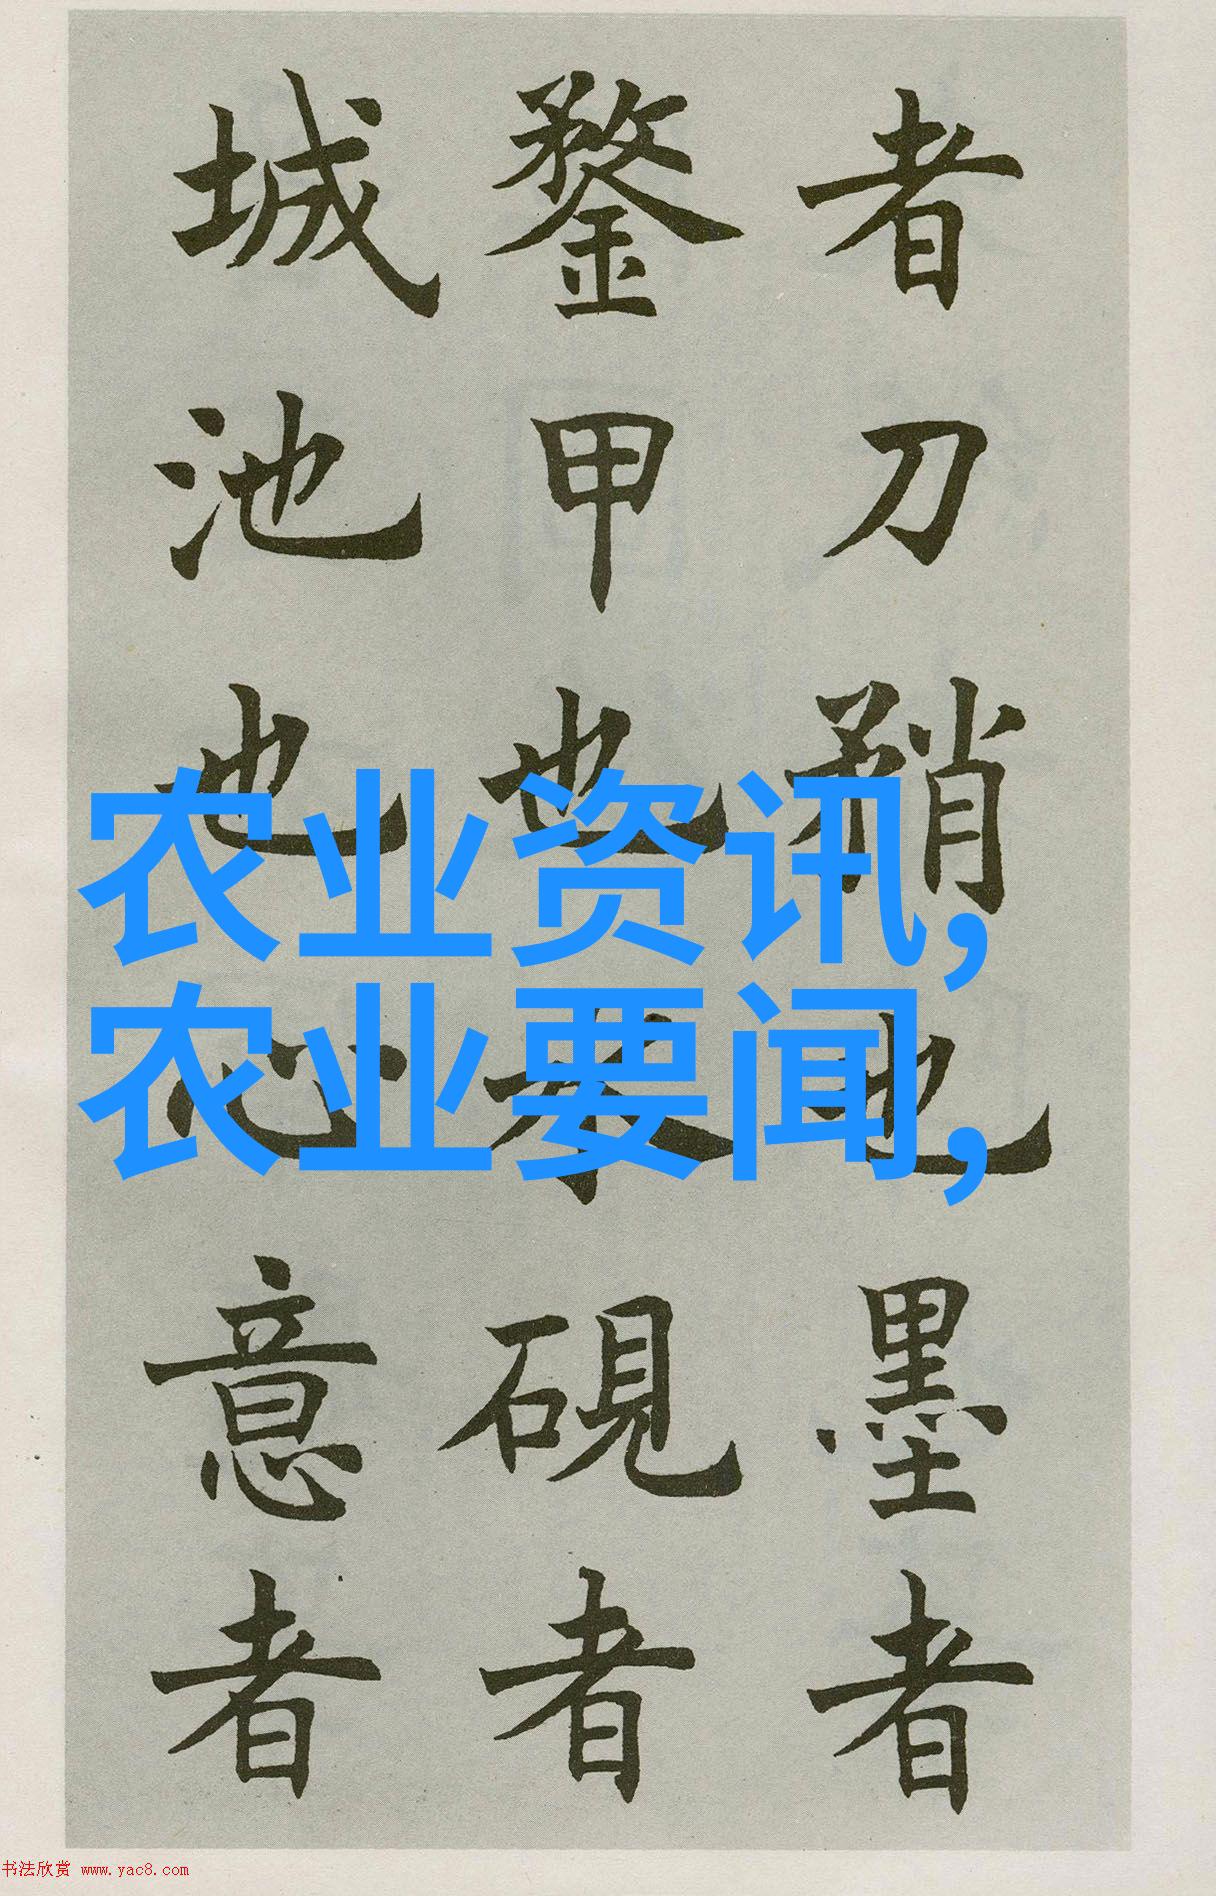 者刀矟也墨者
鍪甲也水硯者
城池也心意者
农业资讯,
农业要闻,
书法欣赏 www.yac8.com